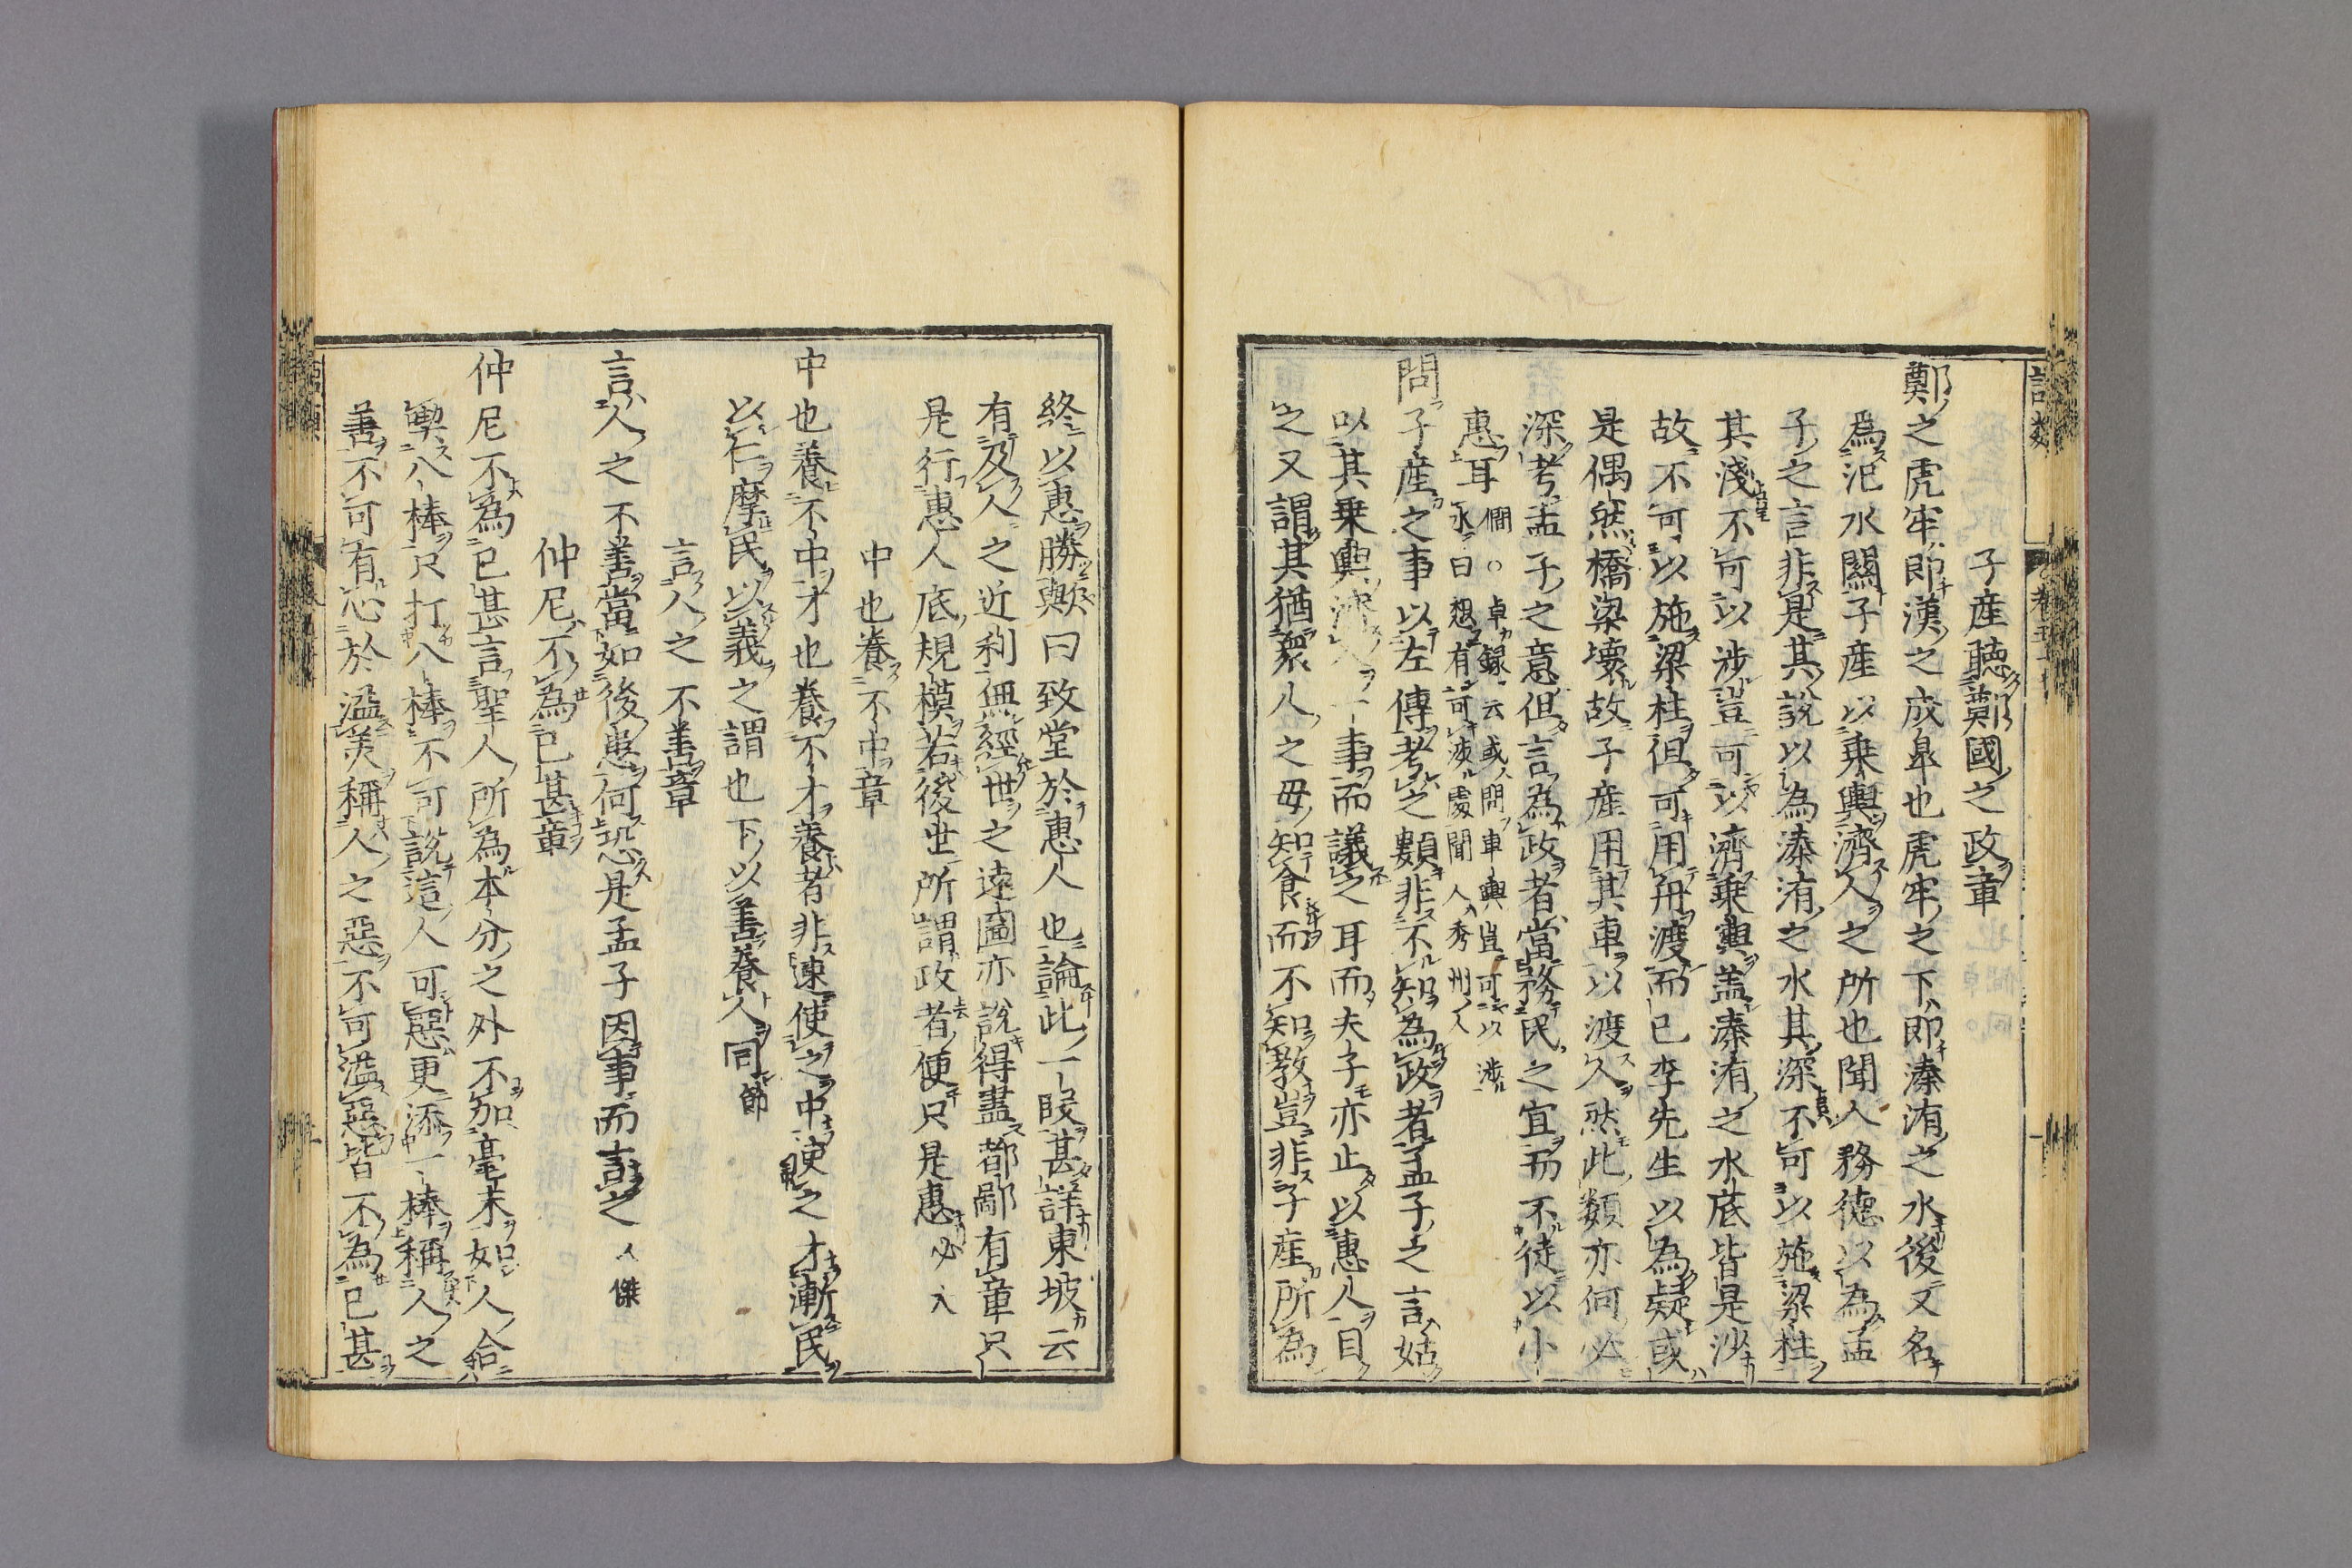 子產聽鄭國之政章
鄭之虎牢即漢之成皐也虎牢之下即溱洧之水後又名
為汜水關子產以乗輿濟人之所也聞人務德以為孟
子之言非是其說以為溱洧之水其深不可以施梁柱
其淺不可以涉豈可以濟乗輿蓋溱洧之水底皆是沙
故不可以施梁柱但可用舟渡而已李先生以為疑或
是偶然橋梁壊故子產用其車以渡人然此類亦何必
深考孟子之意但言為政者當務民之宜而不徒以小
惠耳 僩○卓録云或問車輿豈可以涉
水曰想有可涉處聞人秀州人
問子產之事以左傳考之類非不知為政者孟子之言姑
以其乗輿濟人一事而議之耳而夫子亦止以惠人目
之又謂其猶衆人之母知食而不知教豈非子產所為
終以惠勝歟曰致堂於惠人也論此一段甚詳東坡云
有及人之近利無經世之遠圖亦說得盡都鄙有章只
是行惠人底規模若後世所謂政者便只是惠 必大
中也養不中章
中也養不中才也養不才養者非速使之中使之才漸民
以仁摩民以義之謂也下以善養人同 節
言人之不善章
言人之不善當如後患何恐是孟子因事而言之 人傑
仲尼不為已甚章
仲尼不為已甚言聖人所為本分之外不加毫末如人合
喫八棒只打八棒不可說這人可惡更添一棒稱人之
善不可有心於溢美稱人之惡不可溢惡皆不為已甚